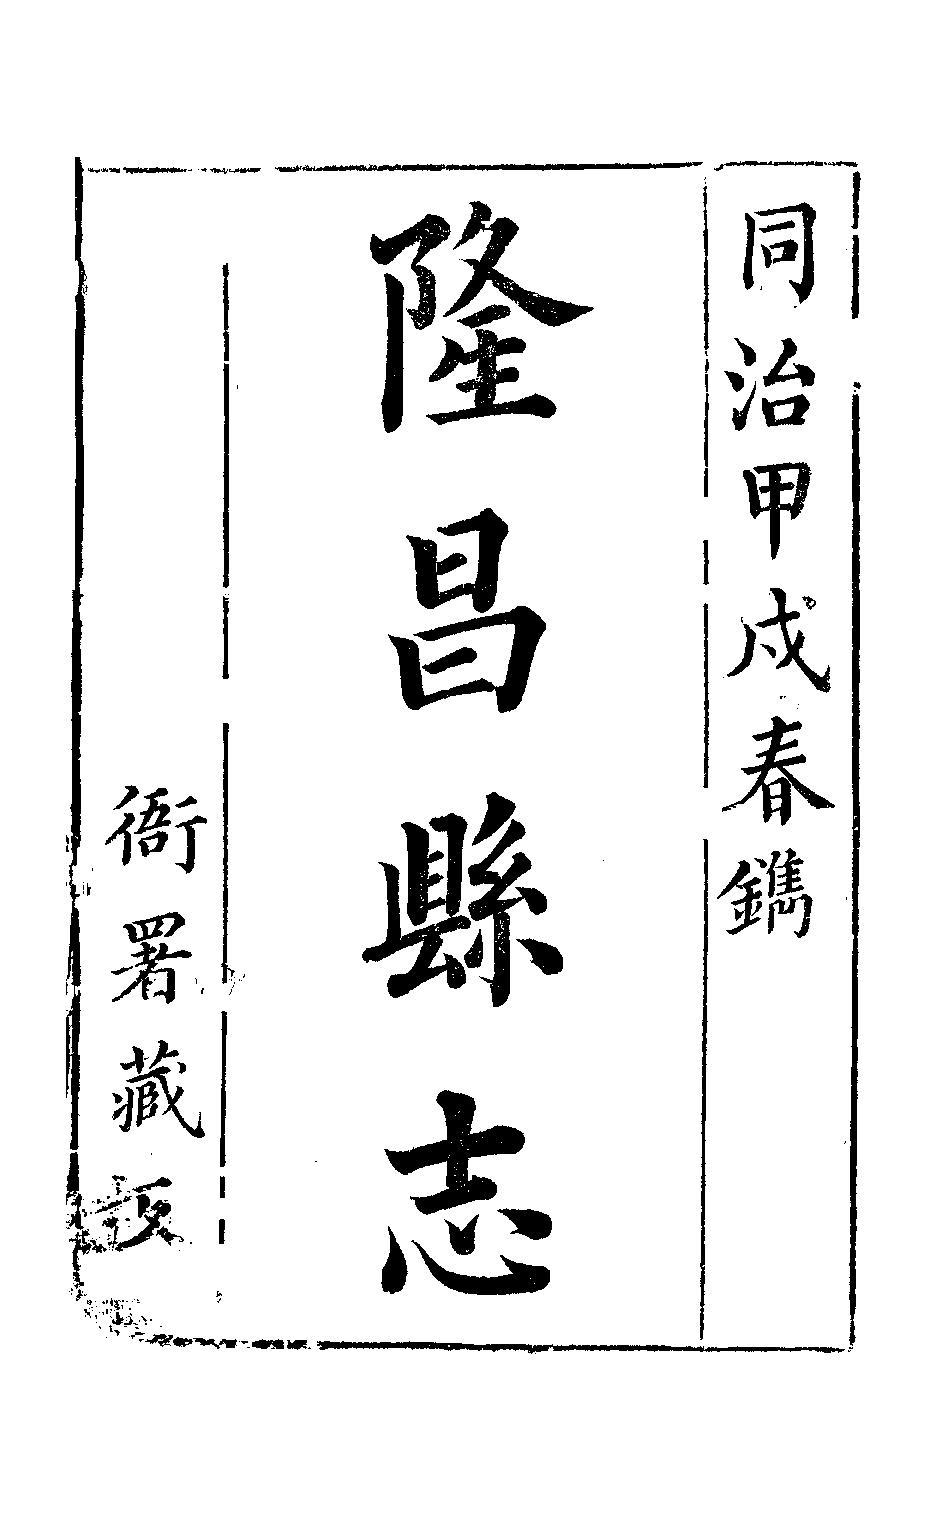 同治甲戍春鐫
隆昌縣志
衙署藏板